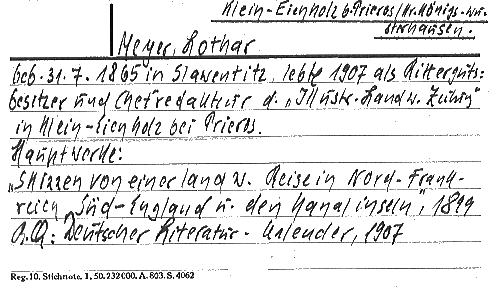 Klein-Eichholz b. Prieros/Kr. Königs-Wu-
sterhausen.
Meyer, Lothar
geb. 31.7.1865 in Slawentitz, lebte 1907 als Ritterguts-
besitzer und Chefredakteur d. „Illustr. Landw. Zeitung"
in Klein-Eichholz bei Prieros.
Hauptwerke:
„Skizzen von einer landw. Reise in Nord-Frank-
reich, Süd-England u. den Kanalinseln", 1899
Deutscher Literatur-Kalender, 1907
Reg. 10. Stichnote. 1, 50. 232000. A. 803. S. 4062